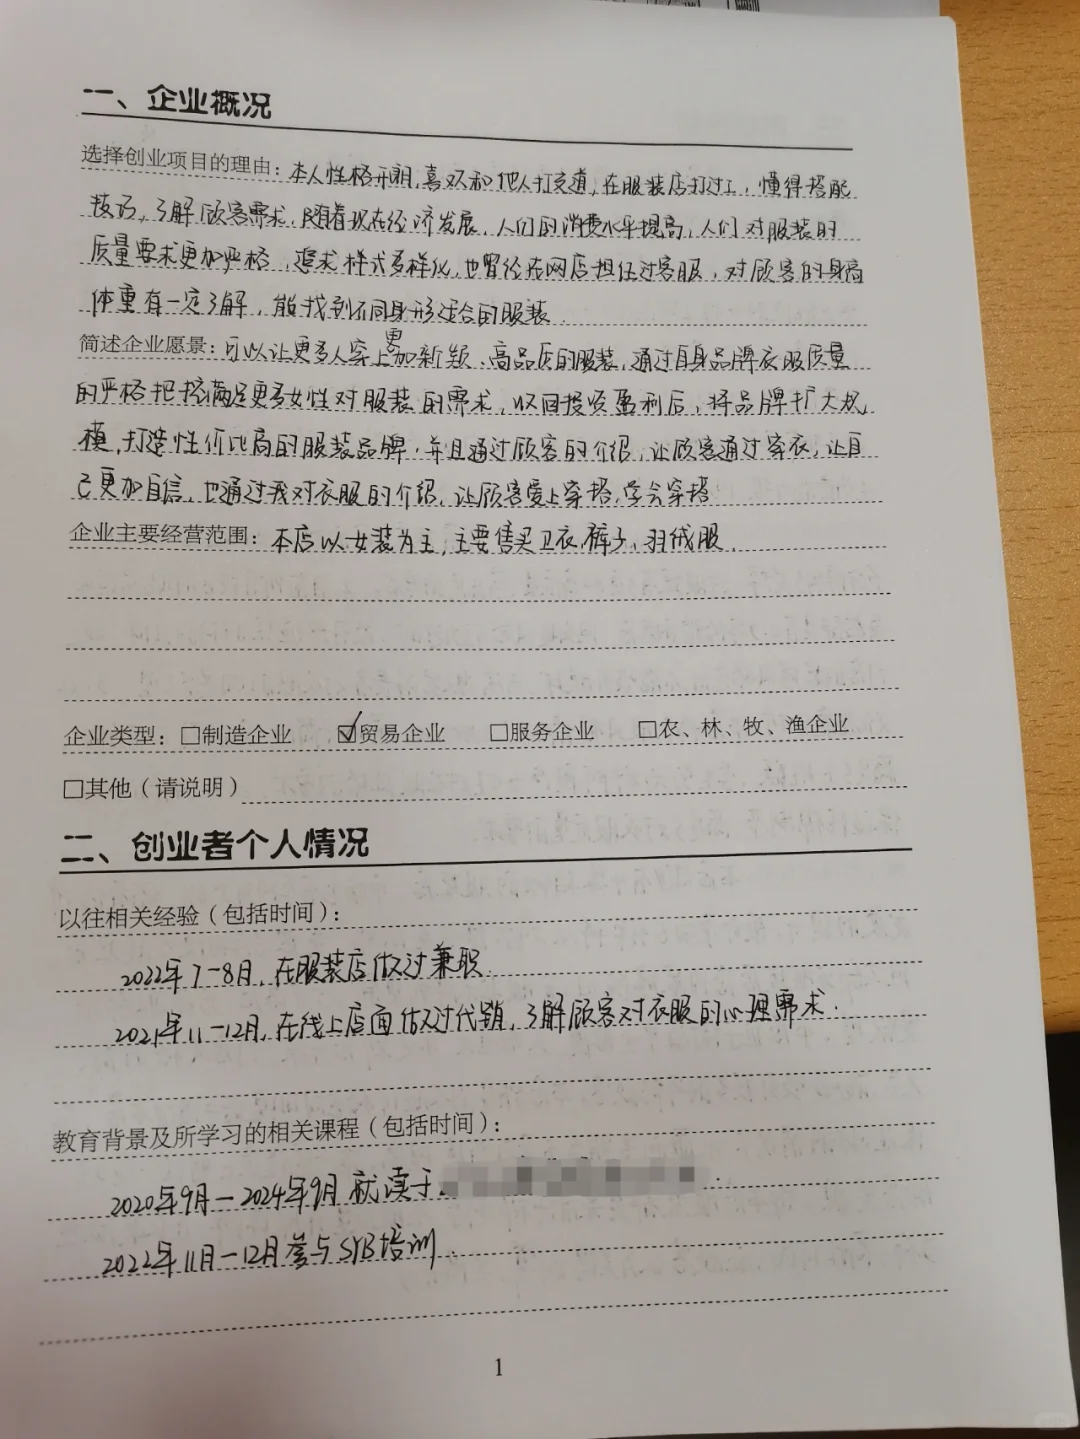 一、企业概况
选择创业项目的理由：本人性格开朗，喜欢和他人打交道，在服装店打过工，懂得搭配
技巧，了解顾客需求，随着现在经济发展，人们的消费水平提高，人们对服装的
质量要求更加严格，追求样式多样化，也曾经在网店担任过客服，对顾客的身高
体重有一定了解，能找到不同身形适合的服装．
简述企业愿景：可以让更多人穿上更加新颖、高品质的服装，通过自身品牌衣服质量
的严格把控满足更多女性对服装的需求，收回投资盈利后，将品牌扩大规
模，打造性价比高的服装品牌，并且通过顾客的介绍，让顾客通过穿衣，让自
己更加自信，也通过我对衣服的介绍，让顾客爱上穿搭，学会穿搭
企业主要经营范围：本店以女装为主，主要售卖卫衣，裤子，羽绒服．
企业类型：□制造企业 ☑贸易企业 □服务企业 □农、林、牧、渔企业
□其他（请说明）
二、创业者个人情况
以往相关经验（包括时间）：
2022年7-8月，在服装店做过兼职．
2021年11-12月，在线上店面做过代销，了解顾客对衣服的心理需求．
教育背景及所学习的相关课程（包括时间）：
2020年9月-2024年9月 就读于
2022年11月-12月参与SYB培训．
1